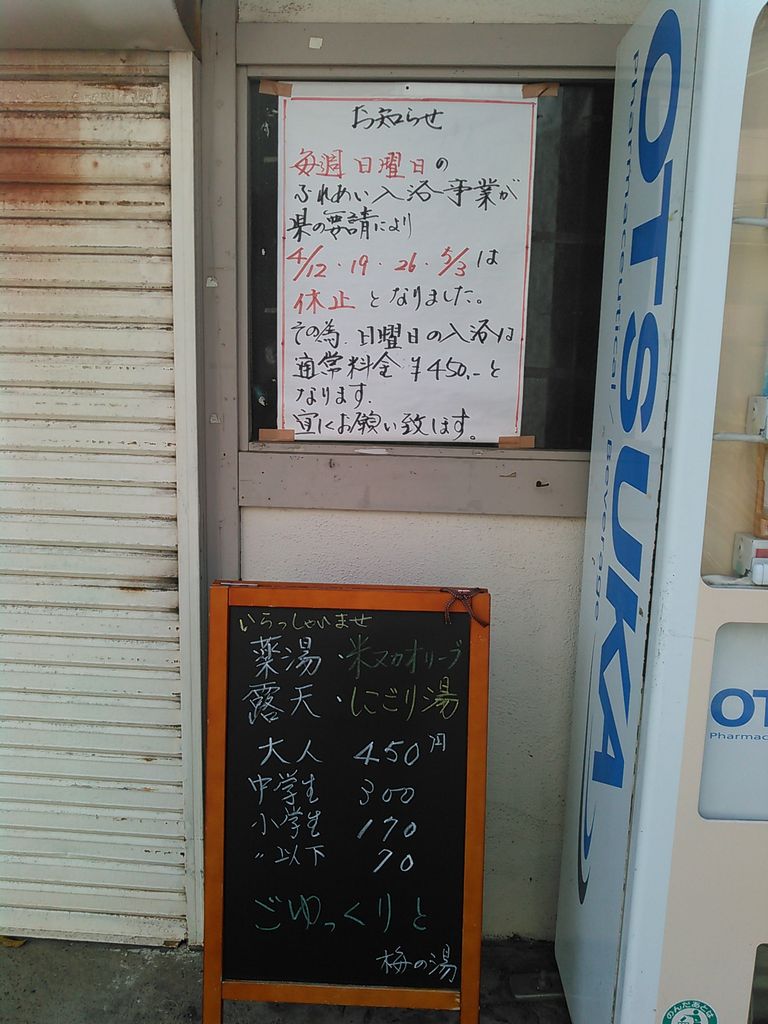 お知らせ
毎週日曜日の
ふれあい入浴事業が
県の要請により
4/12・19・26・5/3は
休止となりました。
その為、日曜日の入浴は
通常料金¥450.-と
なります.
宜しくお願い致します。
いらっしゃいませ
薬湯・米ヌカオリーブ
露天・にごり湯
大人 450円
中学生 300
小学生 170
〃以下 70
ごゆっくりと
梅の湯
OTSUKA
Pharmaceutical / Beverage
OT
Pharmac
のんだあとは